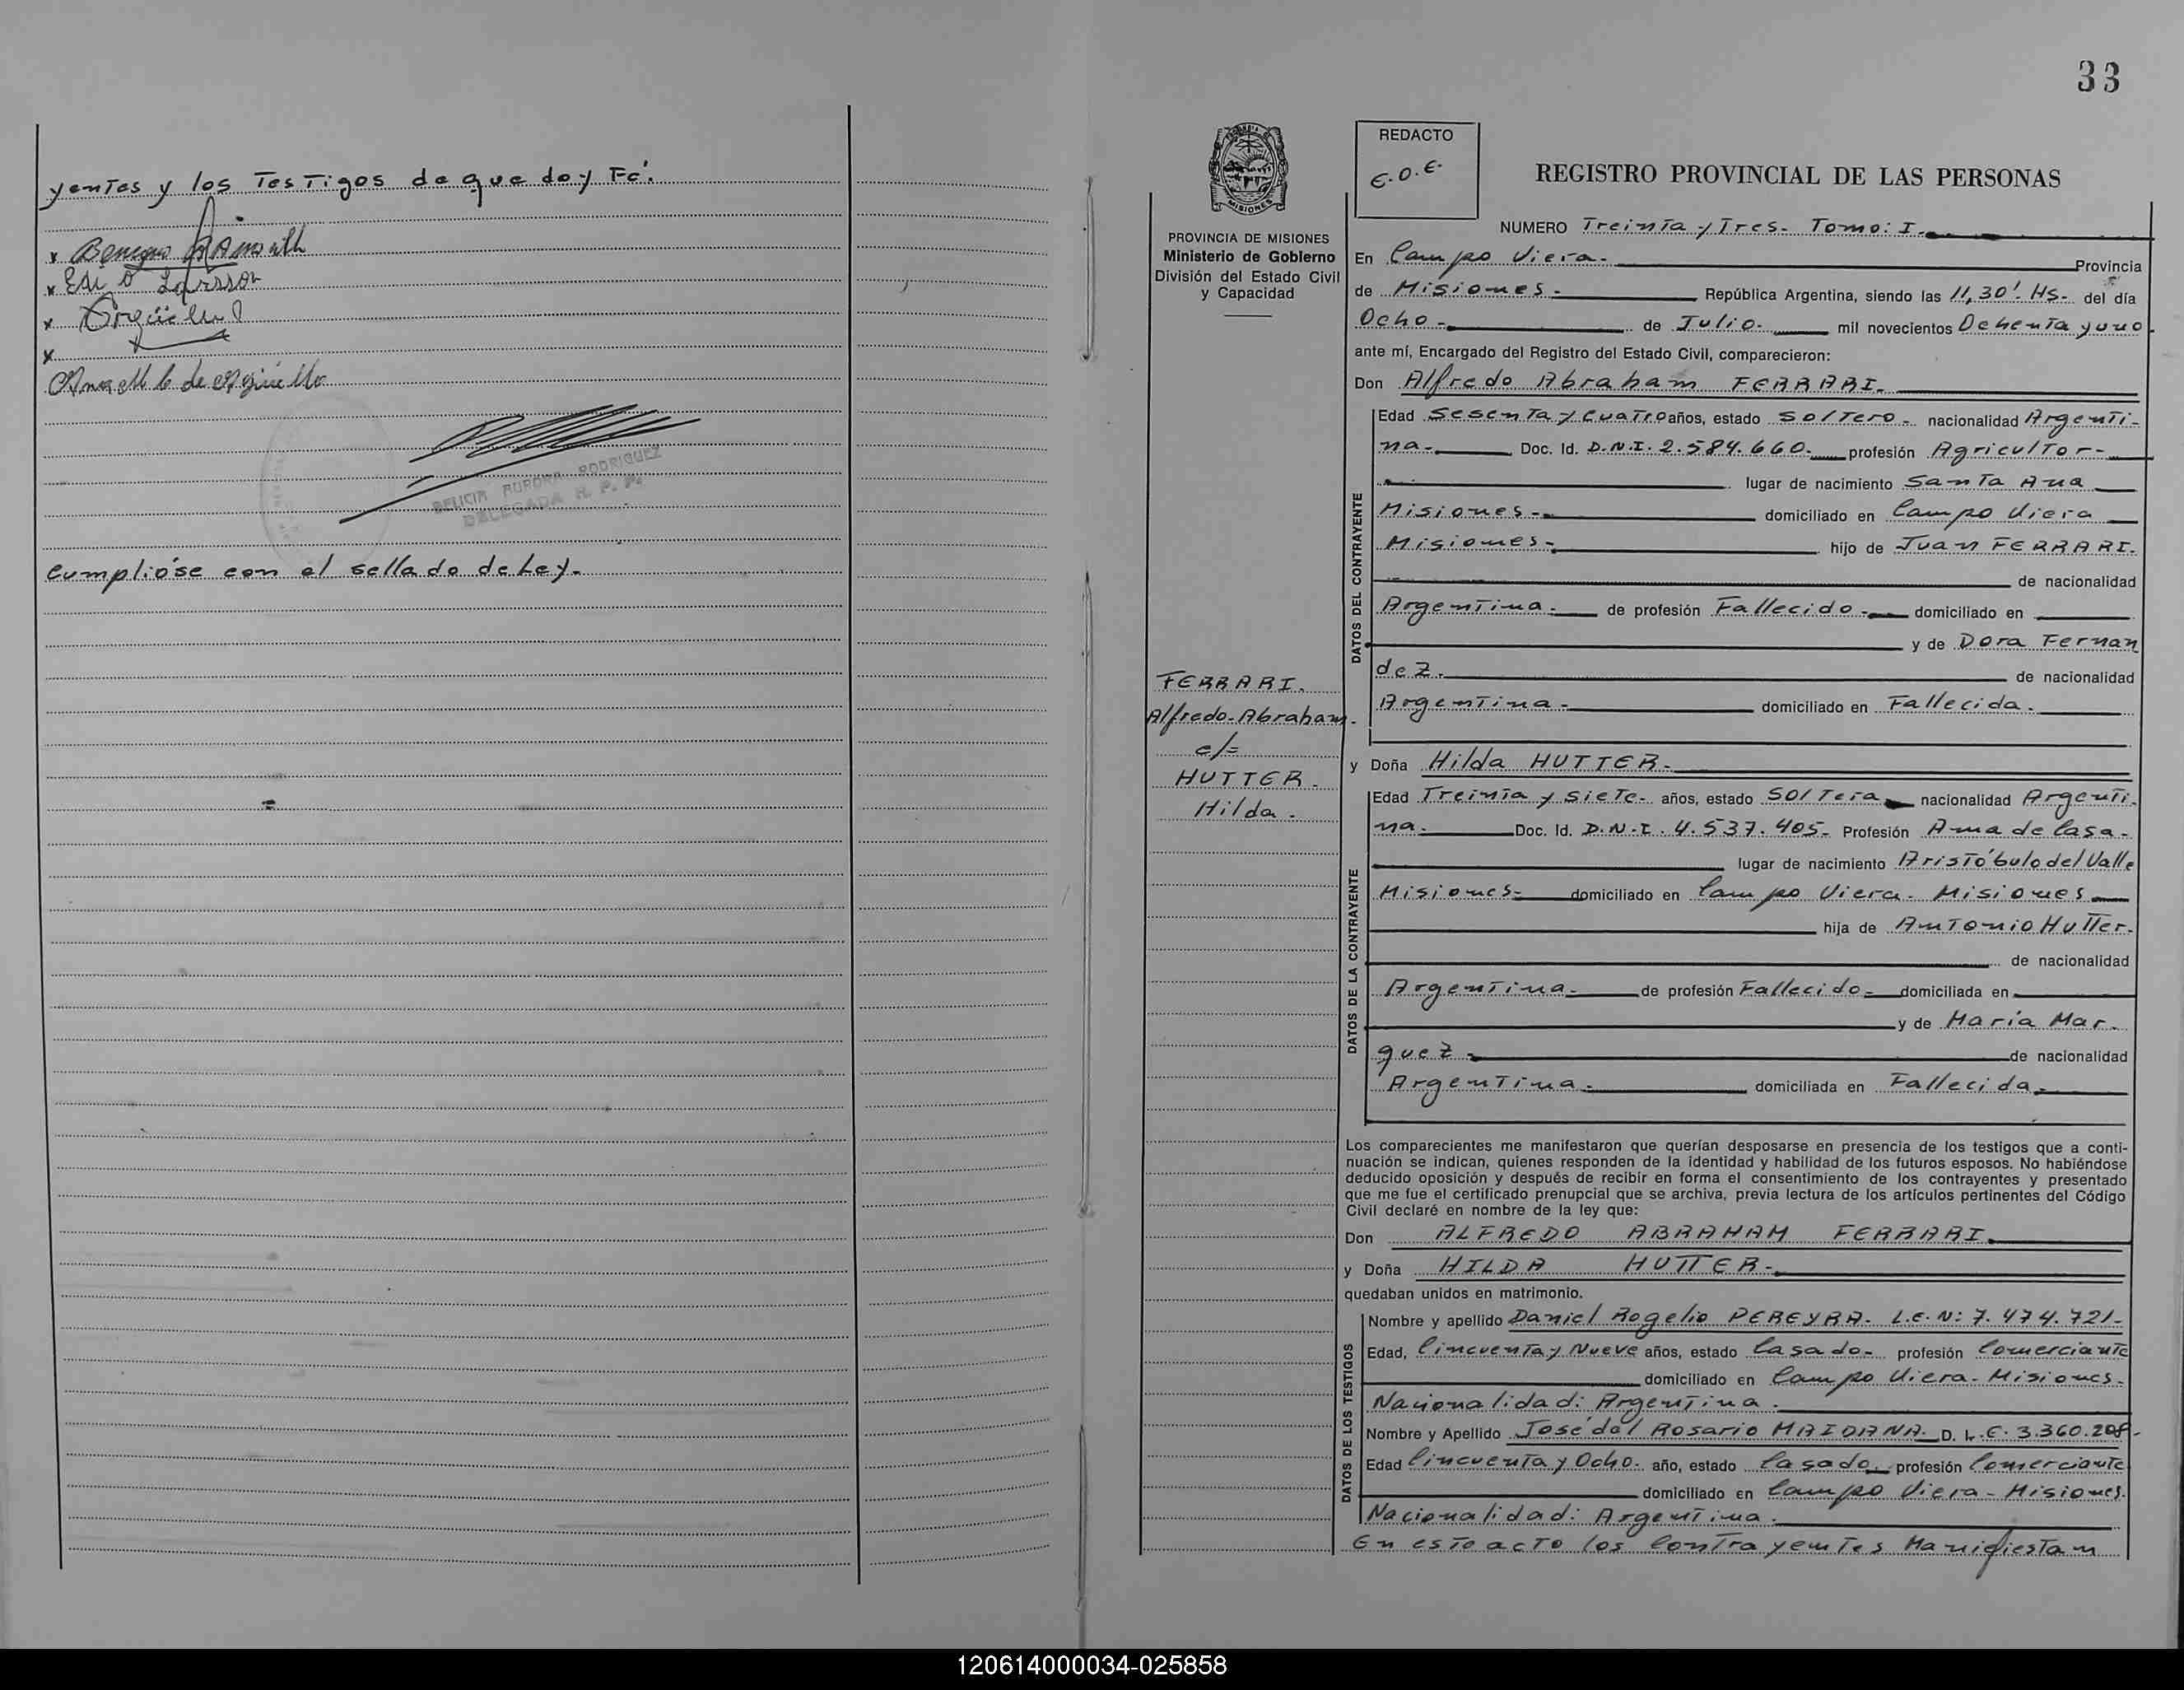 yentes y los Testigos de que doy Fé.
x Benigno
x Larsson
x Argüello
x
Ana M b de Argüello
DELICIA AURORA RODRIGUEZ
DELEGADA R. P. P.
Cumplióse con el sellado de Ley.
33
PROVINCIA DE MISIONES
Ministerio de Gobierno
División del Estado Civil
y Capacidad
FERRARI.
Alfredo Abraham.
c/=
HUTTER.
Hilda.
REDACTO
E.O.E.
REGISTRO PROVINCIAL DE LAS PERSONAS
NUMERO Treinta y Tres. Tomo: I.
En Campo Viera. Provincia
de Misiones. República Argentina, siendo las 11,30'. Hs. del día
Ocho de Julio. mil novecientos Ochenta y uno.
ante mí, Encargado del Registro del Estado Civil, comparecieron:
Don Alfredo Abraham FERRARI.
DATOS DEL CONTRAYENTE
Edad Sesenta y Cuatro años, estado Soltero. nacionalidad Argenti-
na. Doc. Id. D.N.I. 2.584.660. profesión Agricultor-
lugar de nacimiento Santa Ana
Misiones- domiciliado en Campo Viera
Misiones- hijo de Juan FERRARI.
de nacionalidad
Argentina. de profesión Fallecido. domiciliado en
y de Dora Fernan
dez. de nacionalidad
Argentina. domiciliado en Fallecida.
y Doña Hilda HUTTER.
DATOS DE LA CONTRAYENTE
Edad Treinta y Siete. años, estado Soltera nacionalidad Argenti-
na. Doc. Id. D.N.I. 4.537.405. Profesión Ama de Casa.
lugar de nacimiento Aristóbulo del Valle
Misiones- domiciliado en Campo Viera. Misiones
hija de Antonio Hutter.
de nacionalidad
Argentina. de profesión Fallecido. domiciliada en
y de María Mar-
quez. de nacionalidad
Argentina. domiciliada en Fallecida.
Los comparecientes me manifestaron que querían desposarse en presencia de los testigos que a conti-
nuación se indican, quienes responden de la identidad y habilidad de los futuros esposos. No habiéndose
deducido oposición y después de recibir en forma el consentimiento de los contrayentes y presentado
que me fue el certificado prenupcial que se archiva, previa lectura de los artículos pertinentes del Código
Civil declaré en nombre de la ley que:
Don ALFREDO ABRAHAM FERRARI.
y Doña HILDA HUTTER.
quedaban unidos en matrimonio.
DATOS DE LOS TESTIGOS
Nombre y apellido Daniel Rogelio PEREYRA. L.E. N: 7.474.721-
Edad, Cincuenta y Nueve años, estado Casado. profesión Comerciante
domiciliado en Campo Viera. Misiones.
Nacionalidad: Argentina.
Nombre y Apellido José del Rosario MAIDANA. D. L.E. 3.360.208.
Edad Cincuenta y Ocho. año, estado Casado. profesión Comerciante
domiciliado en Campo Viera - Misiones.
Nacionalidad: Argentina.
En este acto los Contrayentes Manifiestan
120614000034-025858